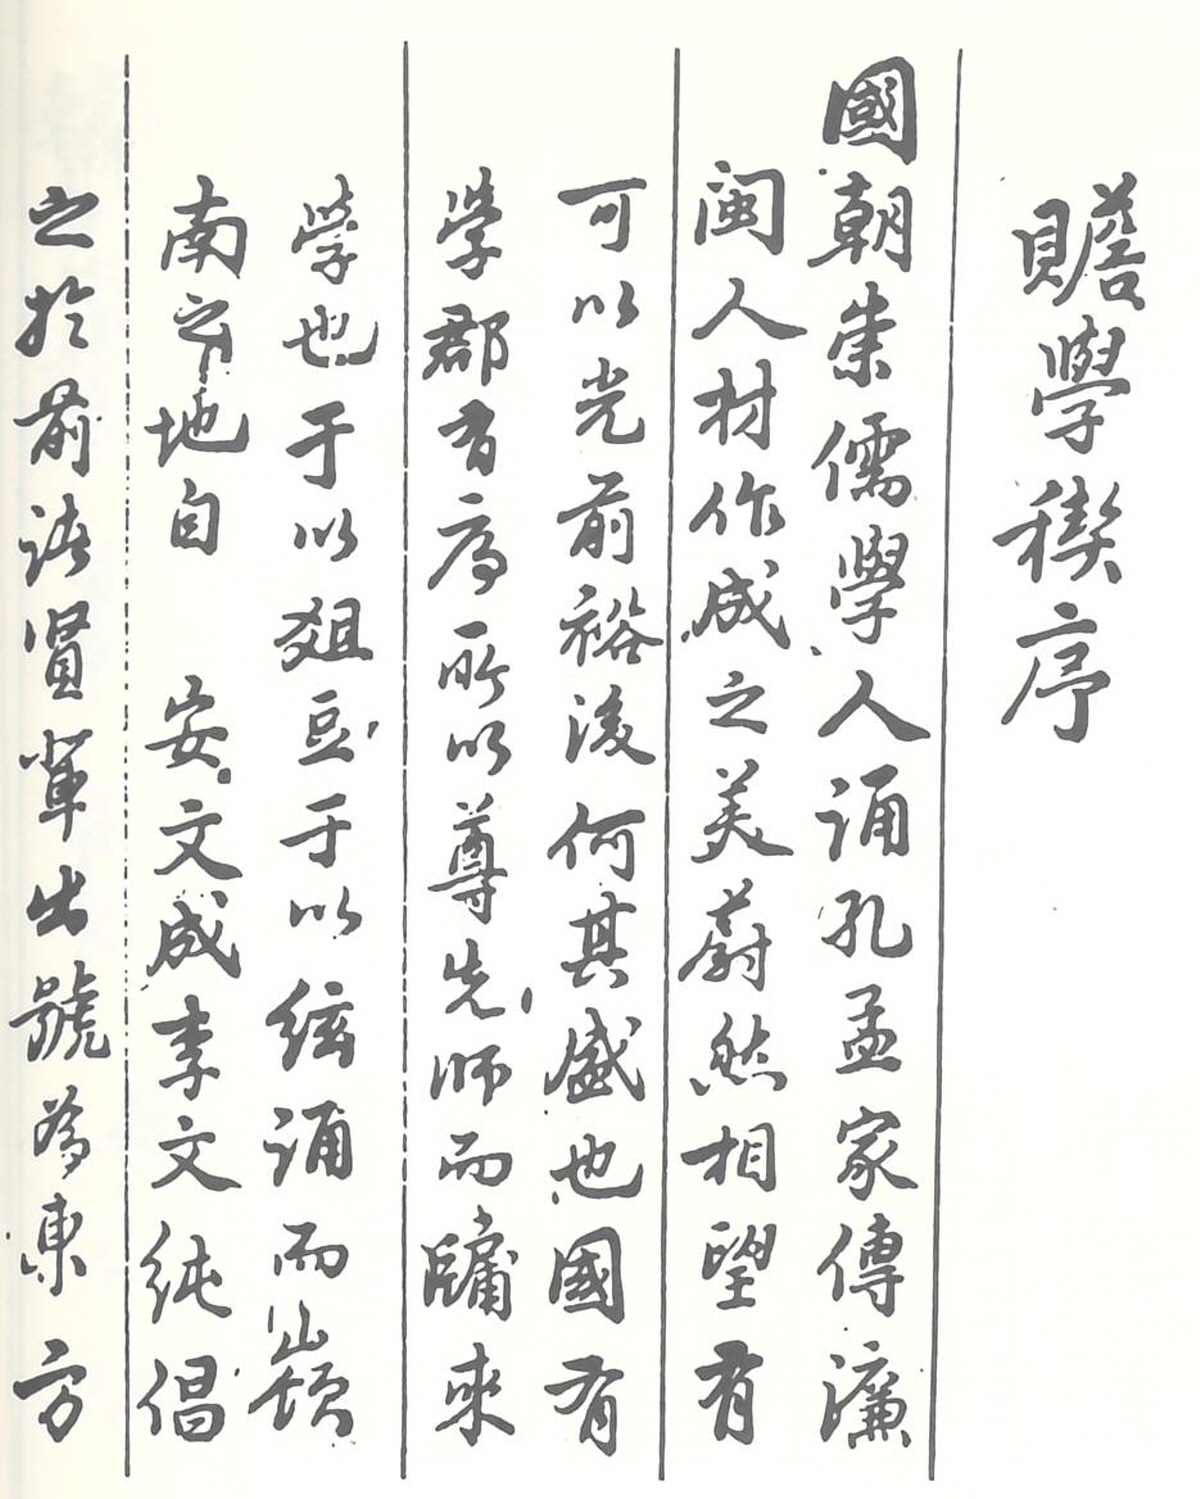 贍學稧序
國朝崇儒學人誦孔孟家傳濂
閩人材作成之美蔚然相望有
可以光前裕後何其盛也國有
學郡有序所以尊先師而牖來
學也于以俎豆于以絃誦而嶺
南之地自 安文成李文純倡
之於前諸賢輩出號為東方